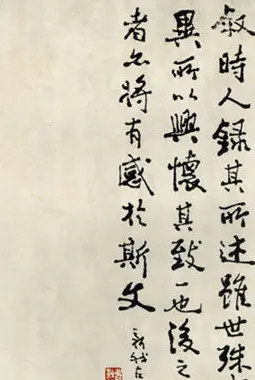 敘時人錄其所述雖世殊
異所以興懷其致一也後之
者亦將有感於斯文